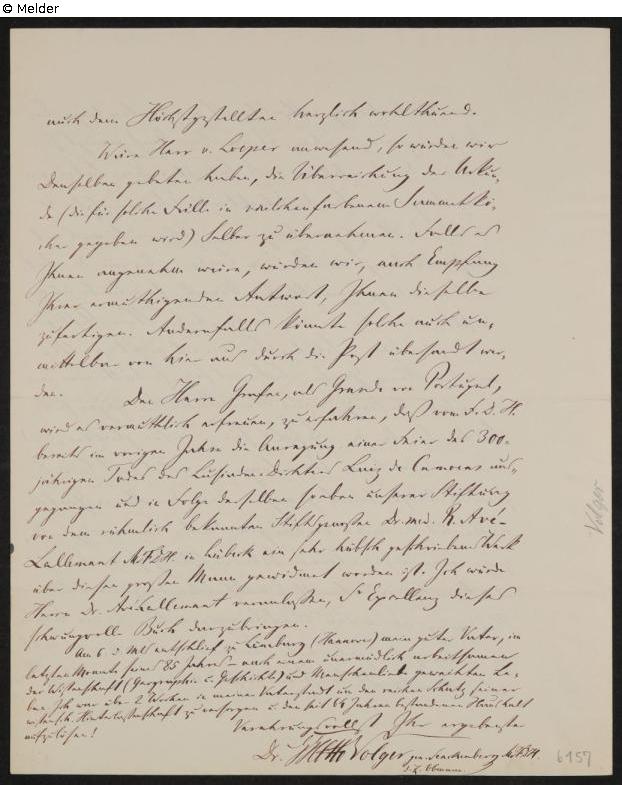 © Melder
auch dem Höchstgestellten herzlich wohlthuend.
Wäre Herr v. Loeper anwesend, so würden wir
Denselben gebeten haben, die Überreichung der Urkun-
de (die für solche Fälle in veilchenfarbenem Sammetkö-
cher gegeben wird) Selber zu übernehmen. Falls es
Ihnen angenehm wäre, würden wir, nach Empfang
Ihrer ermuthigenden Antwort, Ihnen dieselbe
zufertigen. Andernfalls könnte solche auch un-
mittelbar von hier aus durch die Post übersandt wer-
den. Den Herrn Grafen, als Grande von Portugal,
wird es vermuthlich erfreuen, zu erfahren, daß vom F. D. H.
bereits im vorigen Jahre die Anregung einer Feier des 300-
jährigen Todes des Lusiaden-Dichters Luiz de Camoens aus-
gegangen und in Folge derselben soeben unserer Stiftung
von dem rühmlich bekannten Stiftsgenossen Dr. med. R. Avé-
Lallemant M. F. D. H. in Lübeck ein sehr hübsch geschriebenes Werk
über diesen großen Mann gewidmet worden ist. Ich würde
Herrn Dr. Avé Lallemant veranlassen, Sr Excellenz dieses
schwungvolle Buch darzubringen.
Am 6. d. Mts entschlief zu Lüneburg (Hannover) mein guter Vater, im
letzten Monate seines 85 Jahres – nach einem unermüdlich arbeitsamen
der Wissenschaft (Geographie u. Geschichte) und Menschenliebe geweihten Le-
ben. Ich war über 2 Wochen in meiner Vaterstadt um den reichen Schatz seiner
wissensch. Hinterlassenschaft zu versorgen u. den seit 64 Jahren bestandenen Haushalt
aufzulösen!
Verehrungsvollst Ihr ergebenster
Dr. G H Otto Volger gen. Senckenberg M. F. D. H.
d. Z. Obmann.
Volger
6157